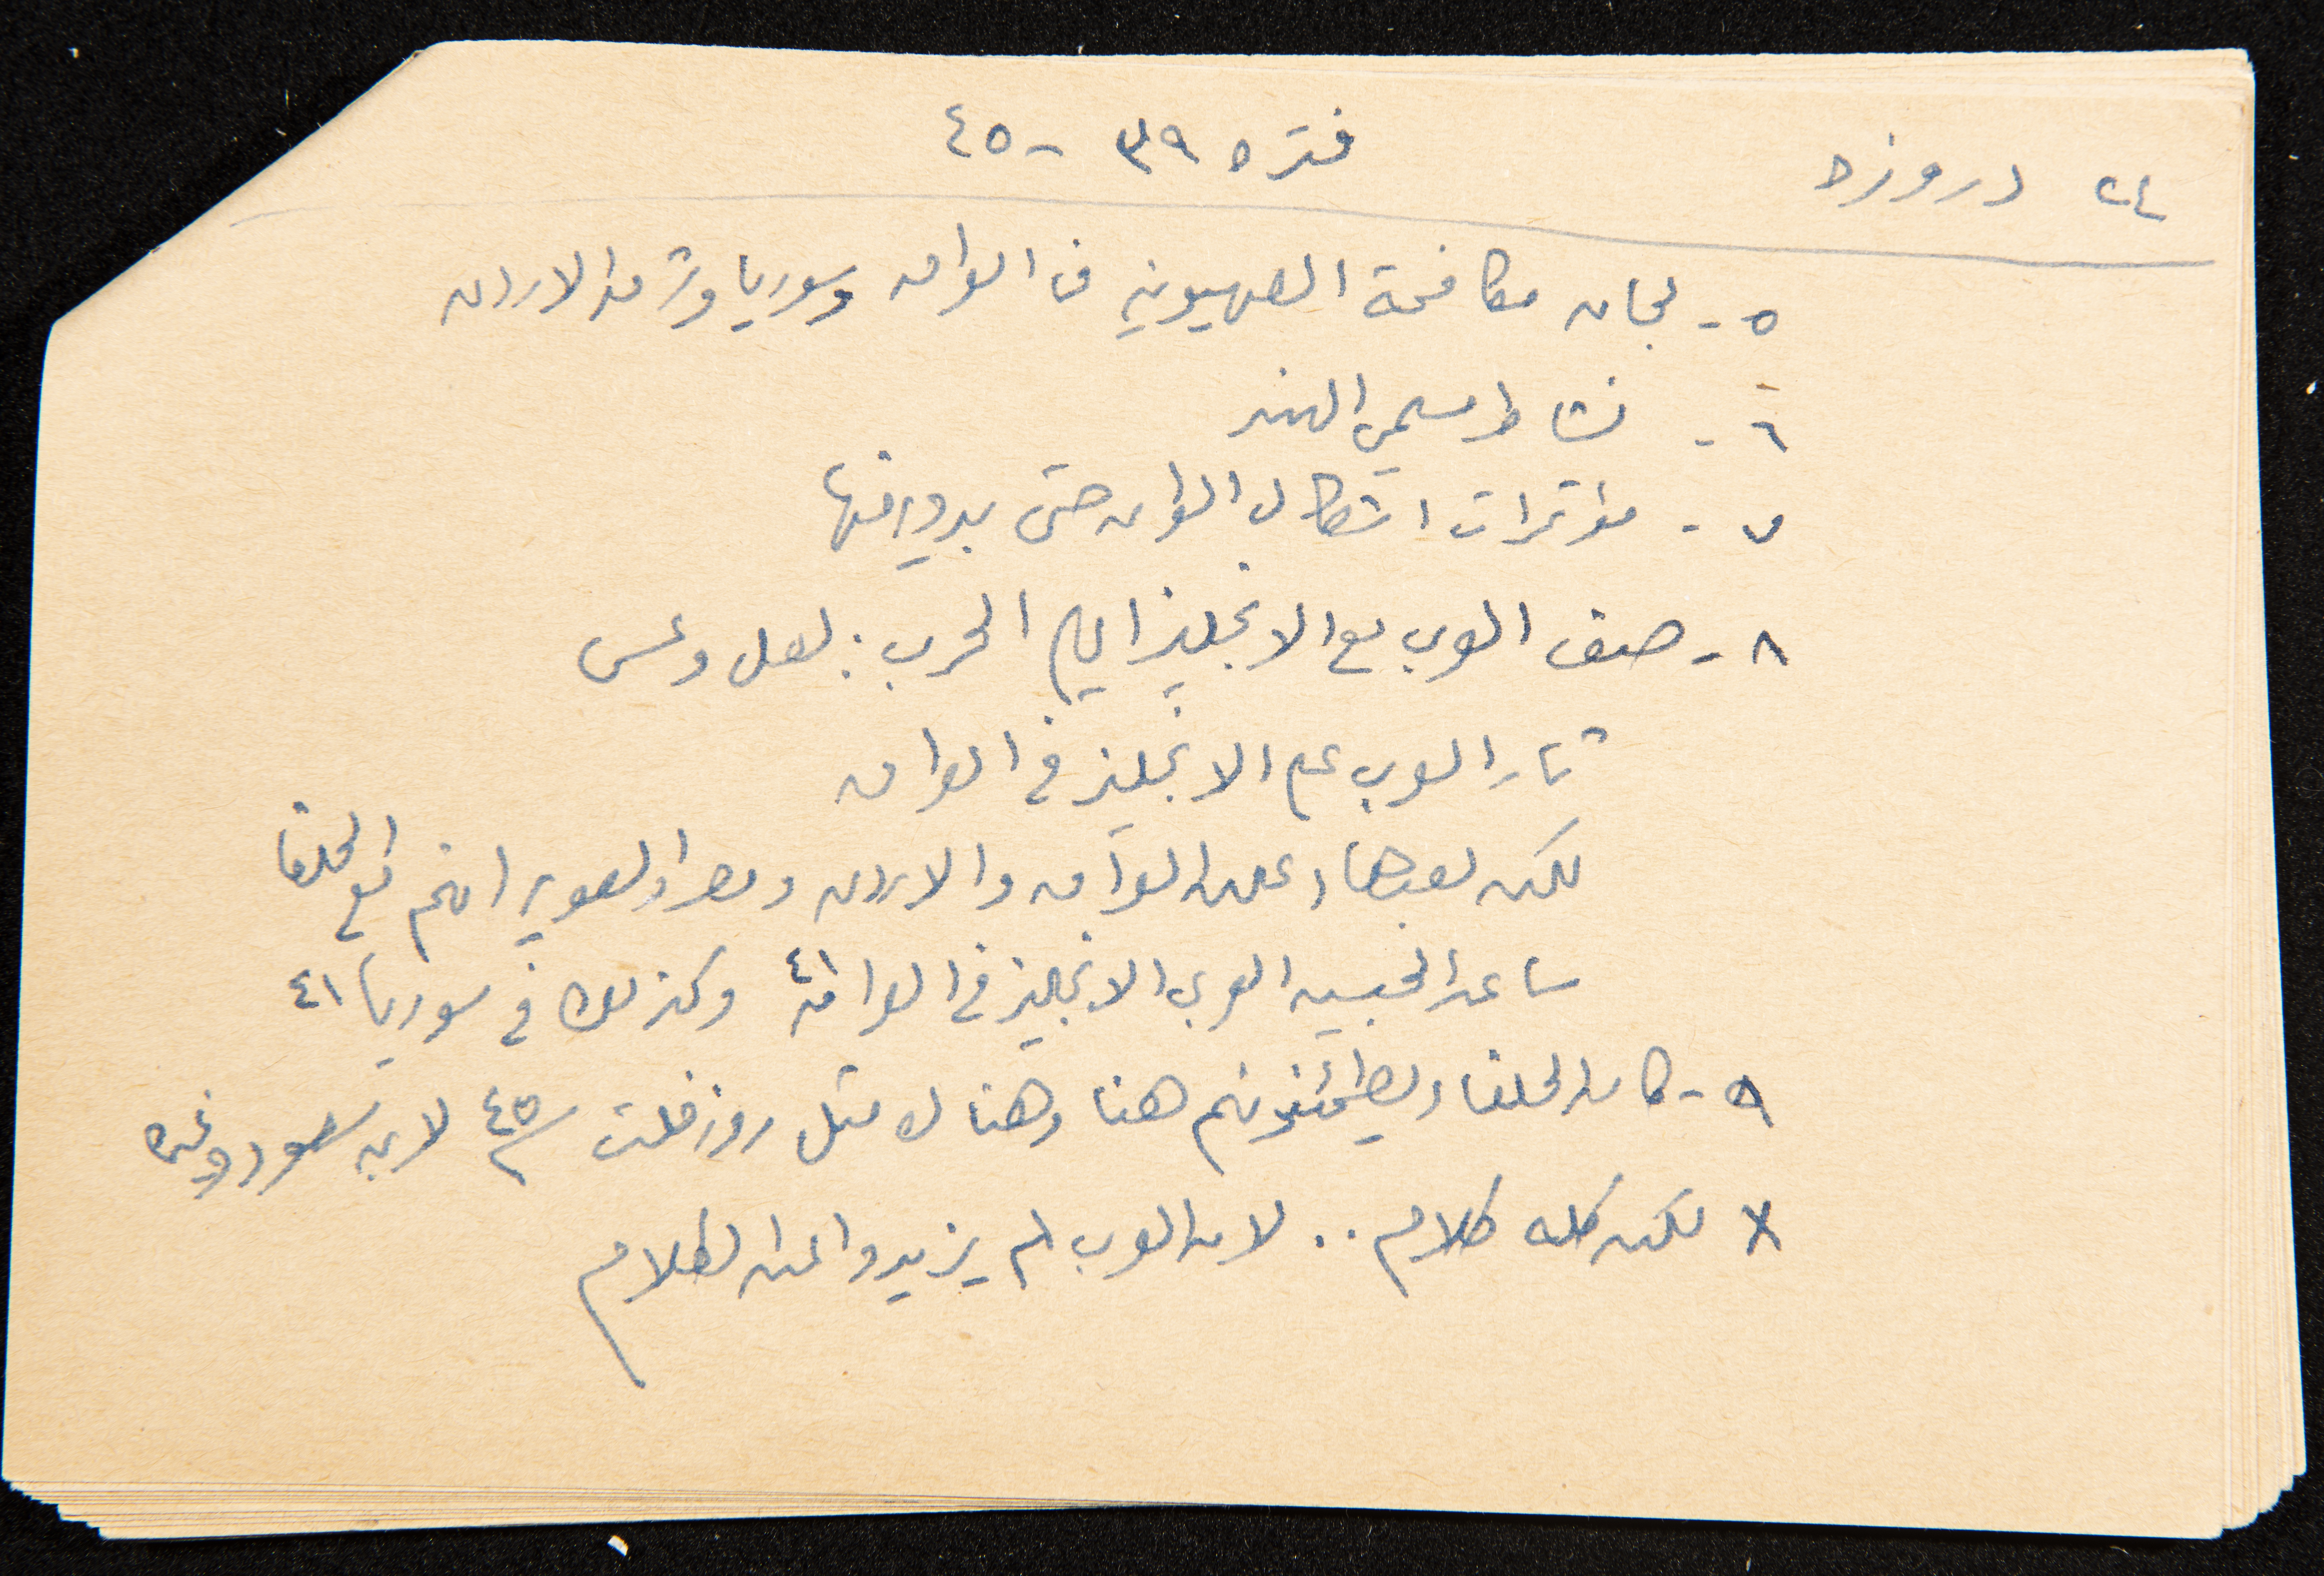 ٢٤ دروزه
فتره ٣٩ - ٤٥
٥ - لجان مكافحة الصهيونيه في العراق وسوريا وشرق الاردن
٦ - نشاط مسلمي الهند
٧ - مؤتمرات اشكال العراق حتى
٨ - صف العرب مع الانجليز ايام الحرب : لعل وعسى
ثار العرب على الانجليز في العراق
لكن بعدها اعلن العراق والاردن ومصر والسعوديه انهم مع الحلفا
ساعد الجيش العربي الانجليز في العراق ٤١ وكذلك في سوريا ٤١
٩ - كان الحلفاء يطمئنونهم هنا وهناك مثل روزفلت ٤٥ لابن سعود وغيره
x لكن كله كلام .. لان العرب لم يزيدوا عن الكلام